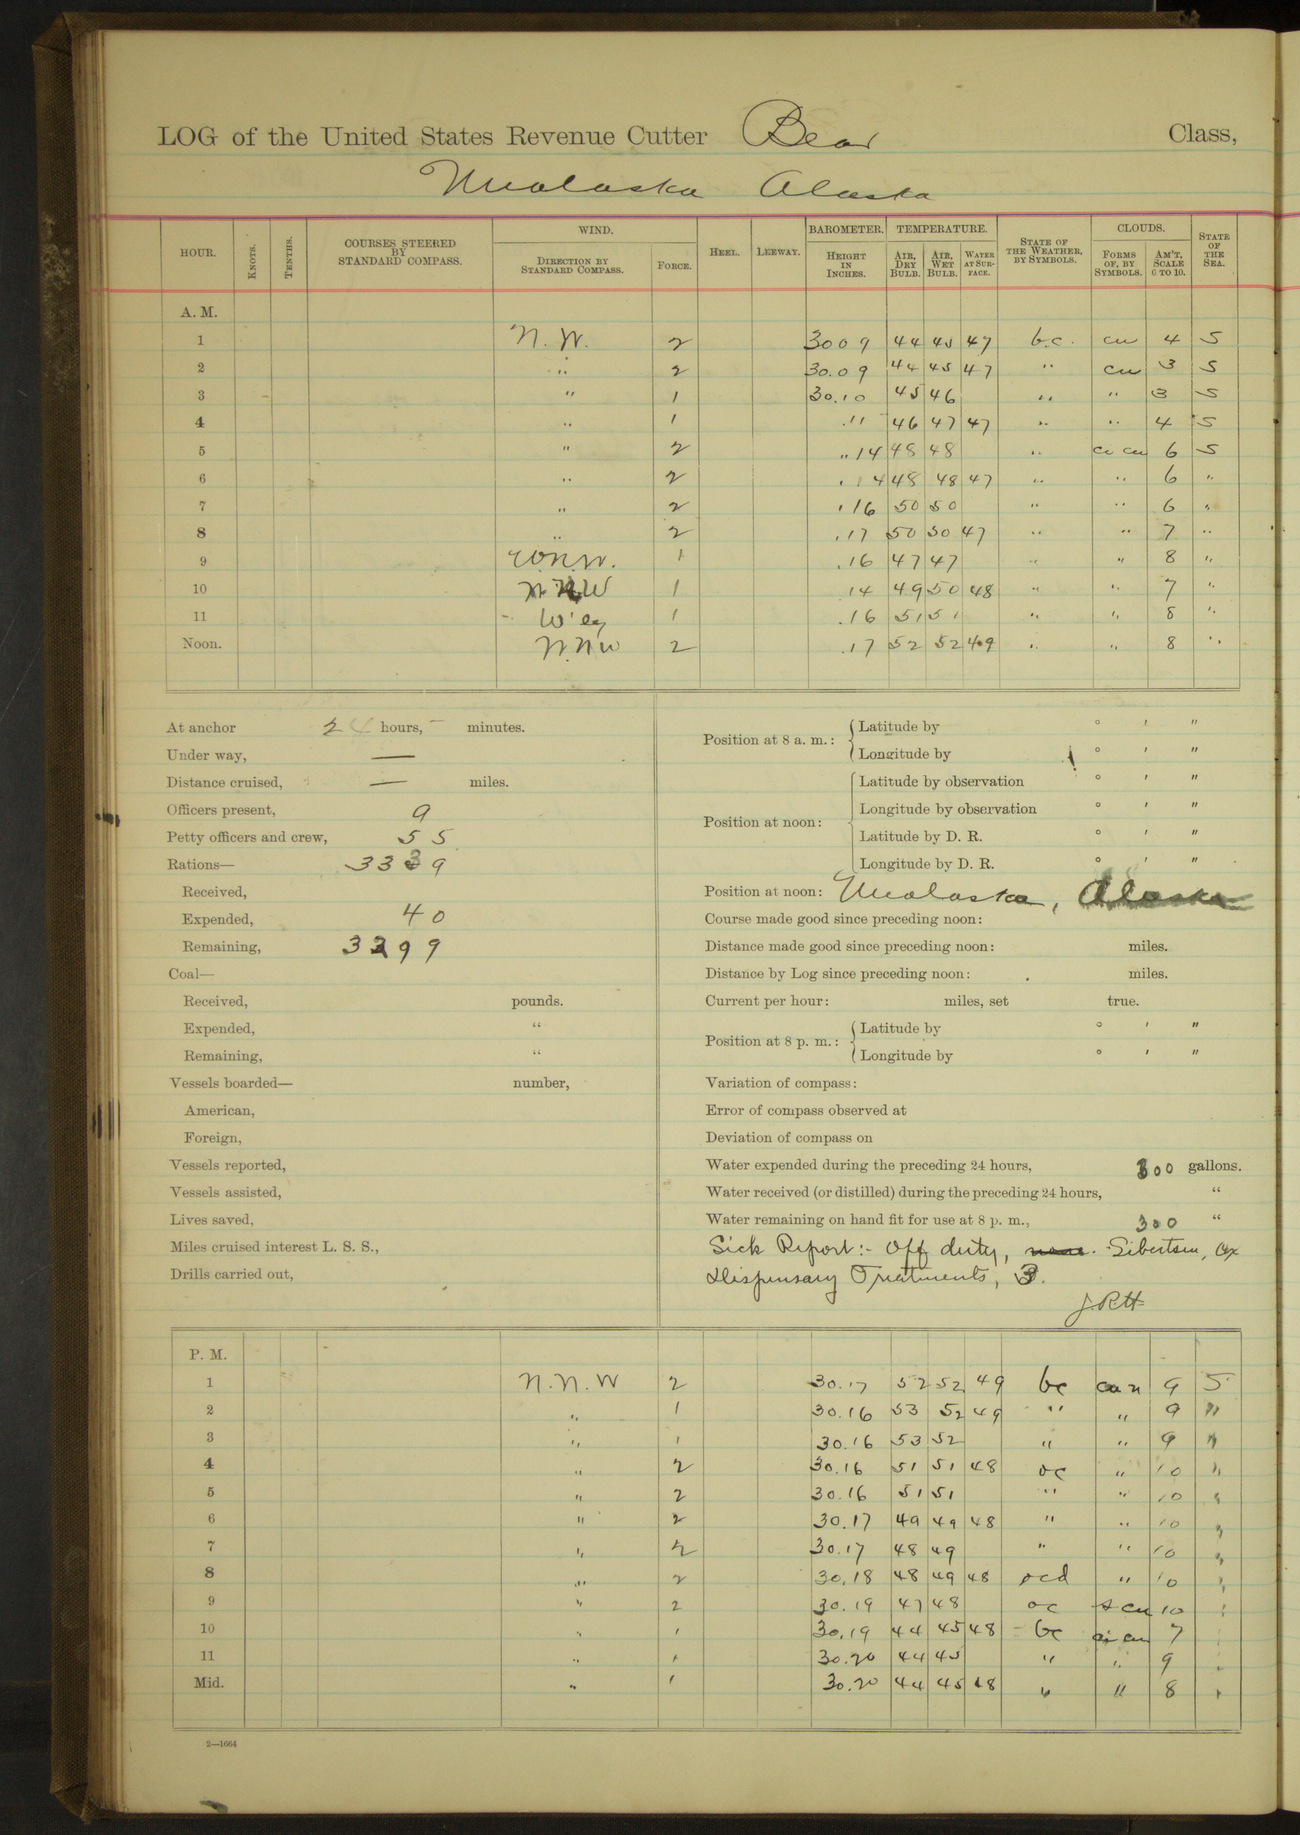 LOG of the United States Revenue Cutter Bear Class,
Unalaska Alaska
HOUR. KNOTS. TENTHS. COURSES STEERED BY STANDARD COMPASS. WIND. DIRECTION BY STANDARD COMPASS. FORCE. HEEL. LEEWAY. BAROMETER. HEIGHT IN INCHES. TEMPERATURE. AIR, DRY BULB. AIR, WET BULB. WATER AT SURFACE. STATE OF THE WEATHER, BY SYMBOLS. CLOUDS. FORMS OF, BY SYMBOLS. AM'T, SCALE 0 TO 10. STATE OF THE SEA.
A. M.
1 N. W. 2 30 09 44 45 47 b.c. cu 4 S
2 " 2 30.09 44 45 47 " cu 3 S
3 " 1 30.10 45 46 " " 3 S
4 " 1 .11 46 47 47 " " 4 S
5 " 2 .14 48 48 " ci cu 6 S
6 " 2 .14 48 48 47 " " 6 "
7 " 2 .16 50 50 " " 6 "
8 " 2 .17 50 50 47 " " 7 "
9 W.N.W. 1 .16 47 47 " 8 "
10 N.N.W 1 14 49 50 48 " " 7 "
11 W'ly 1 .16 51 51 " " 8 "
Noon. N.N.W 2 .17 52 52 49 " " 8 "
At anchor 24 hours, — minutes.
Under way, —
Distance cruised, — miles.
Officers present, 9
Petty officers and crew, 55
Rations— 3339
Received,
Expended, 40
Remaining, 3299
Coal—
Received, pounds.
Expended, "
Remaining, "
Vessels boarded— number,
American,
Foreign,
Vessels reported,
Vessels assisted,
Lives saved,
Miles cruised interest L. S. S.,
Drills carried out,
Position at 8 a. m.: Latitude by ° ' "
Longitude by ° ' "
Position at noon: Latitude by observation ° ' "
Longitude by observation ° ' "
Latitude by D. R. ° ' "
Longitude by D. R. ° ' "
Position at noon: Unalaska, Alaska
Course made good since preceding noon:
Distance made good since preceding noon: miles.
Distance by Log since preceding noon: miles.
Current per hour: miles, set true.
Position at 8 p. m.: Latitude by ° ' "
Longitude by ° ' "
Variation of compass:
Error of compass observed at
Deviation of compass on
Water expended during the preceding 24 hours, 300 gallons.
Water received (or distilled) during the preceding 24 hours, "
Water remaining on hand fit for use at 8 p. m., 300 "
Sick Report:- Off duty, none. Sibertsen,
Dispensary Treatments, 3.
J.R.H
P. M.
1 N.N.W 2 30.17 52 52 49 bc cu n 9 S
2 " 1 30.16 53 52 49 " " 9 "
3 " 1 30.16 53 52 " " 9 "
4 " 2 30.16 51 51 48 oc " 10 "
5 " 2 30.16 51 51 " " 10 "
6 " 2 30.17 49 49 48 " " 10 "
7 " 2 30.17 48 49 " " 10 "
8 " 2 30.18 48 49 48 ocd " 10 "
9 " 2 30.19 47 48 oc s cu 10 "
10 " 1 30.19 44 45 48 bc ci cu 7 "
11 " 1 30.20 44 45 " " 9 "
Mid. " 1 30.20 44 45 48 " " 8 "
2—1664